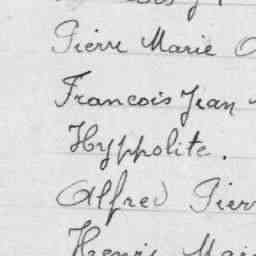 Pierre Marie
Francois Jean
Hyppolite.
Alfred Pierr
Henri Mari